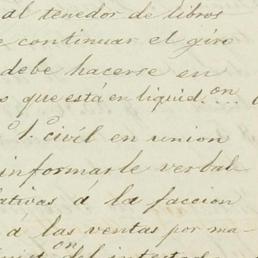 al tenedor de libros
continuar el giro
debe hacerse en
que está en liquid.on
1. civil en union
informarle verbal
ativas á la faccion
á las ventas por ma-
on del intestado